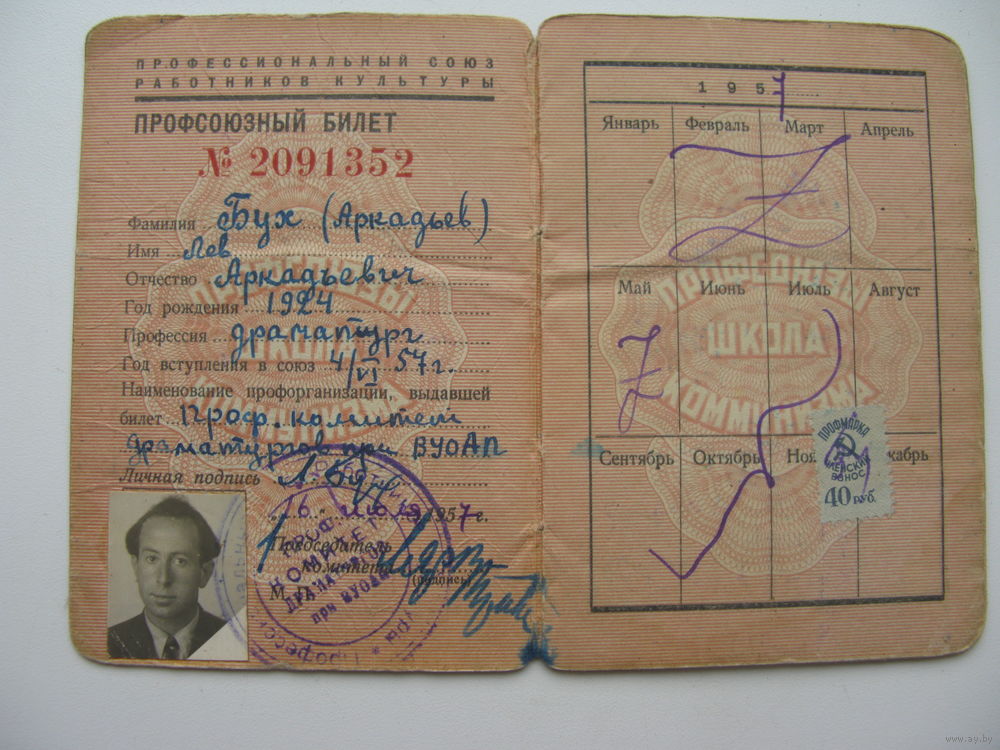 ПРОФЕССИОНАЛЬНЫЙ СОЮЗ
РАБОТНИКОВ КУЛЬТУРЫ
ПРОФСОЮЗНЫЙ БИЛЕТ
№ 2091352
Фамилия Бух (Аркадьев)
Имя Лев
Отчество Аркадьевич
Год рождения 1924
Профессия драматург
Год вступления в союз 4/VI 57г.
Наименование профорганизации, выдавшей
билет Проф. комитет
драматургов при ВУОАП
Личная подпись Л. Бух
16 июля 1957 г.
Председатель
комитета
(подпись)
М. П.
ДРАМАТУРГОВ
при ВУОАП
1957
Январь Февраль Март Апрель
Май Июнь Июль Август
Сентябрь Октябрь Ноя кабрь
ПРОФСОЮЗЫ
ШКОЛА
КОММУНИЗМА
ПРОФМАРКА
ЧЛЕНСКИЙ
ВЗНОС
40 руб.
www.ay.by